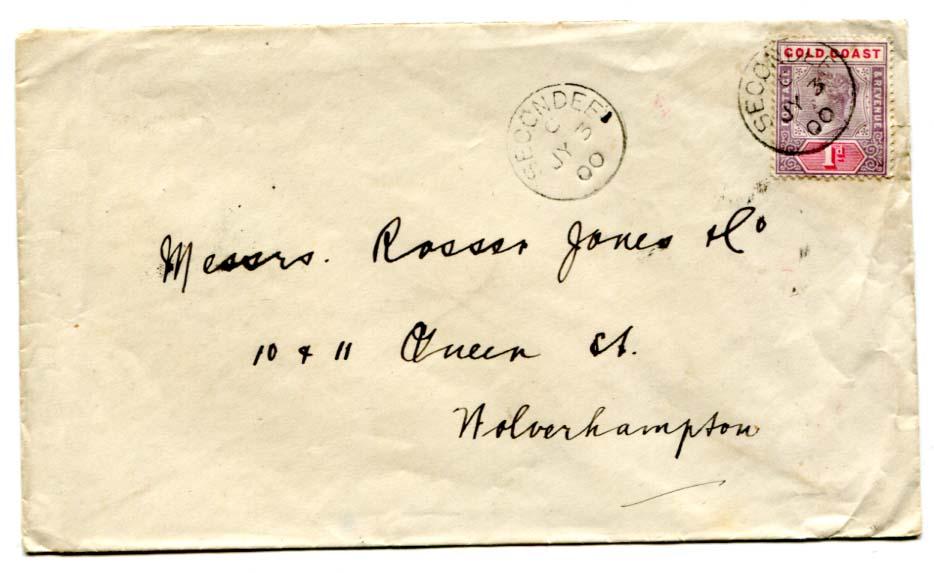 GOLD COAST
POSTAGE & REVENUE
1d
SECONDEE
JY 3
00
SECONDEE
C
JY 3
00
Messrs. Rosser Jones & Co
10 & 11 Queen St.
Wolverhampton